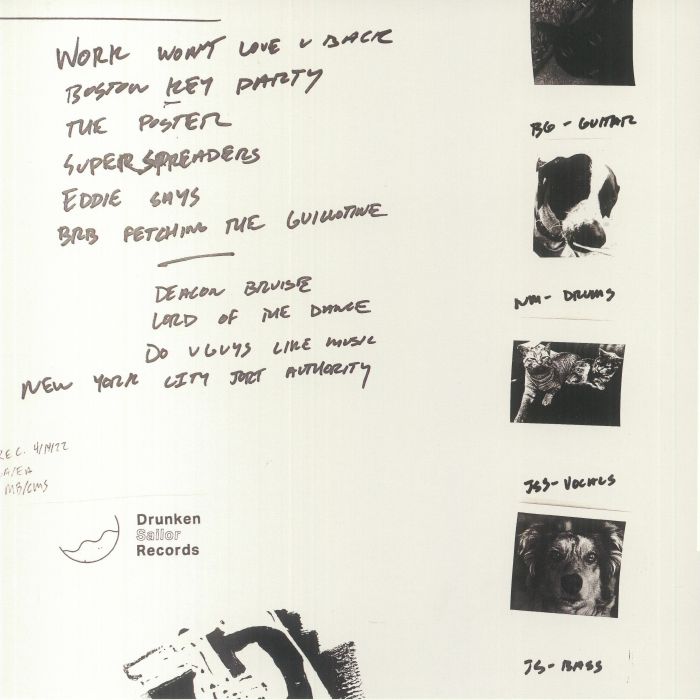 WORK WON'T LOVE U BACK
BOSTON KEY PARTY
THE POSTER
SUPERSPREADERS
EDDIE SAYS
BRB FETCHING THE GUILLOTINE
DEACON BRUISE
LORD OF THE DANCE
DO U GUYS LIKE MUSIC
NEW YORK CITY JORT AUTHORITY
REC. 4/14/22
MB/CMS
Drunken
Sailor
Records
BG - GUITAR
NM - DRUMS
JSS - VOCALS
JS - BASS